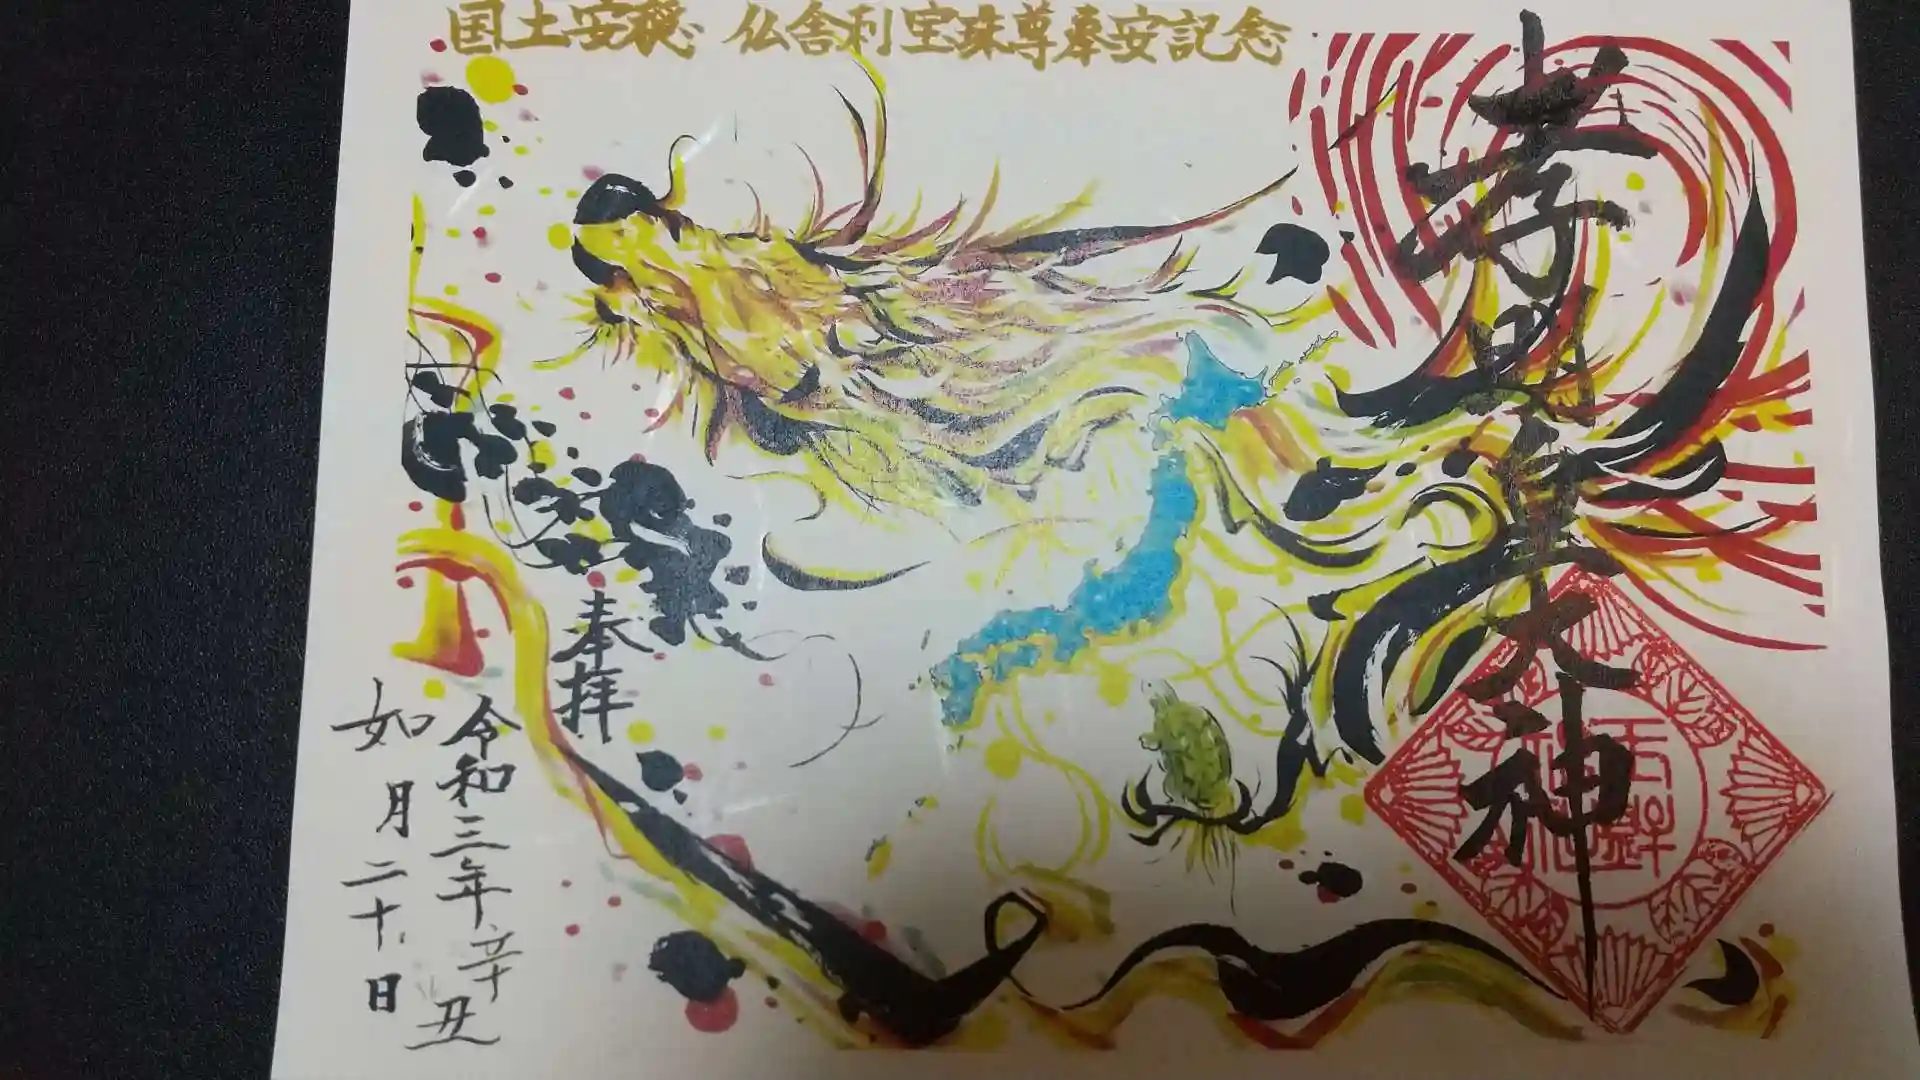 国土安穏 仏舎利宝珠尊奉安記念
孝明皇大神
玉鉾
神社
奉拝
令和三年辛丑
如月二十日